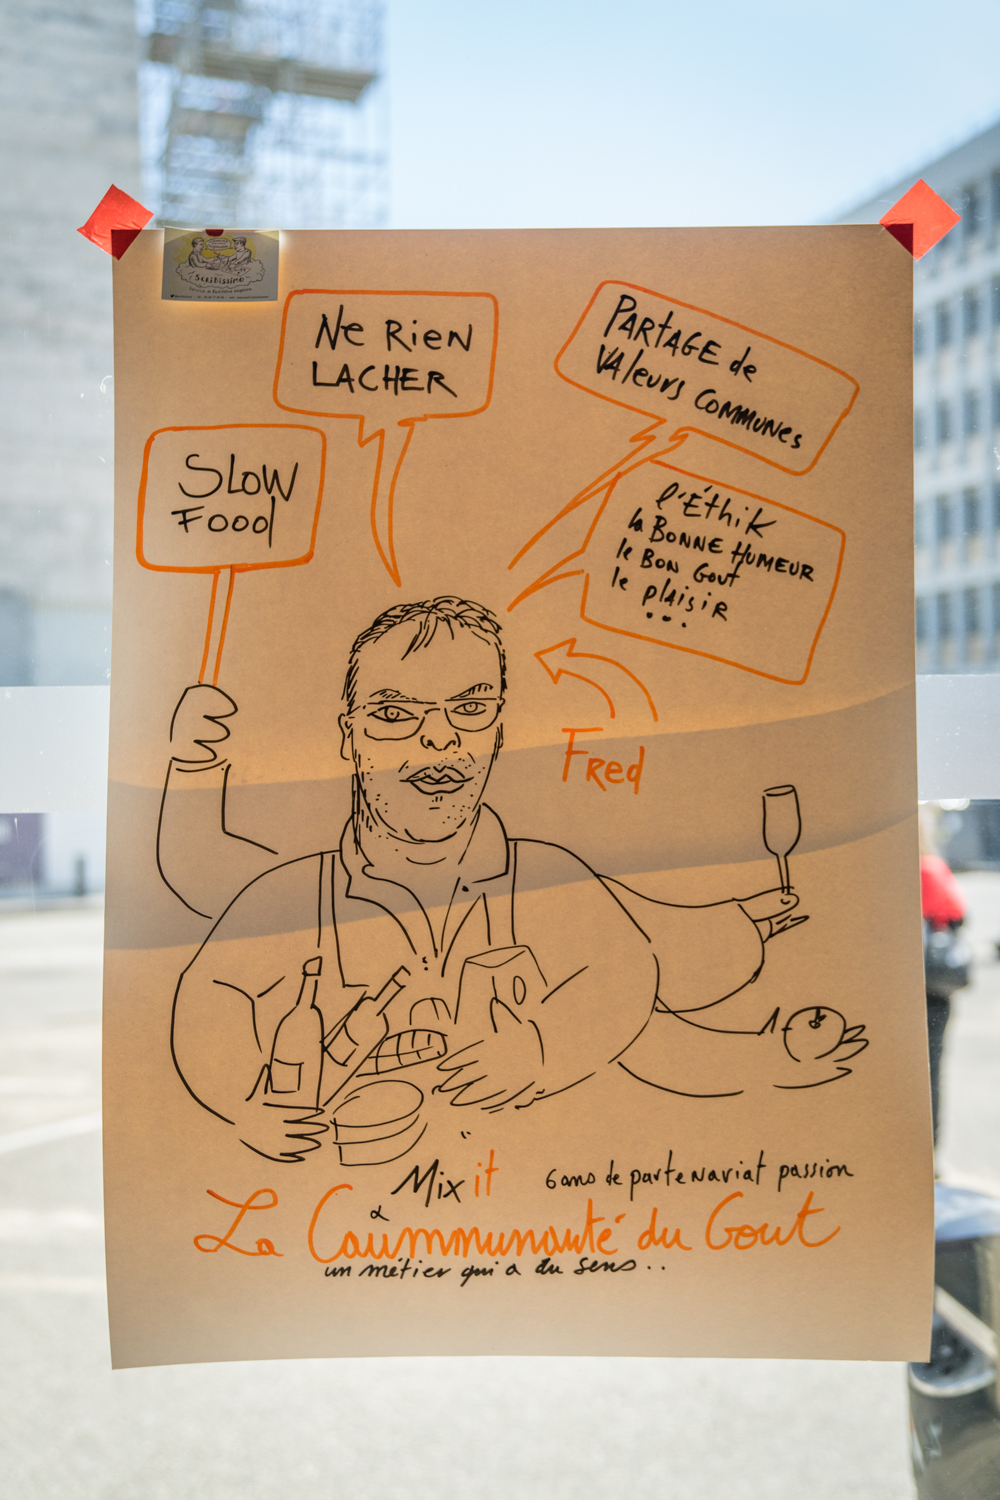 Scribissimo
Ne Rien
LACHER
PARTAGE de
VAleurs COMMUNes
SLOW
Food
l'Éthik
la BONNE HUMEUR
le BON Gout
le plAisiR
...
FRed
Mix it
6 ans de partenariat passion
&
La Coummunauté du Gout
un métier qui a du sens..